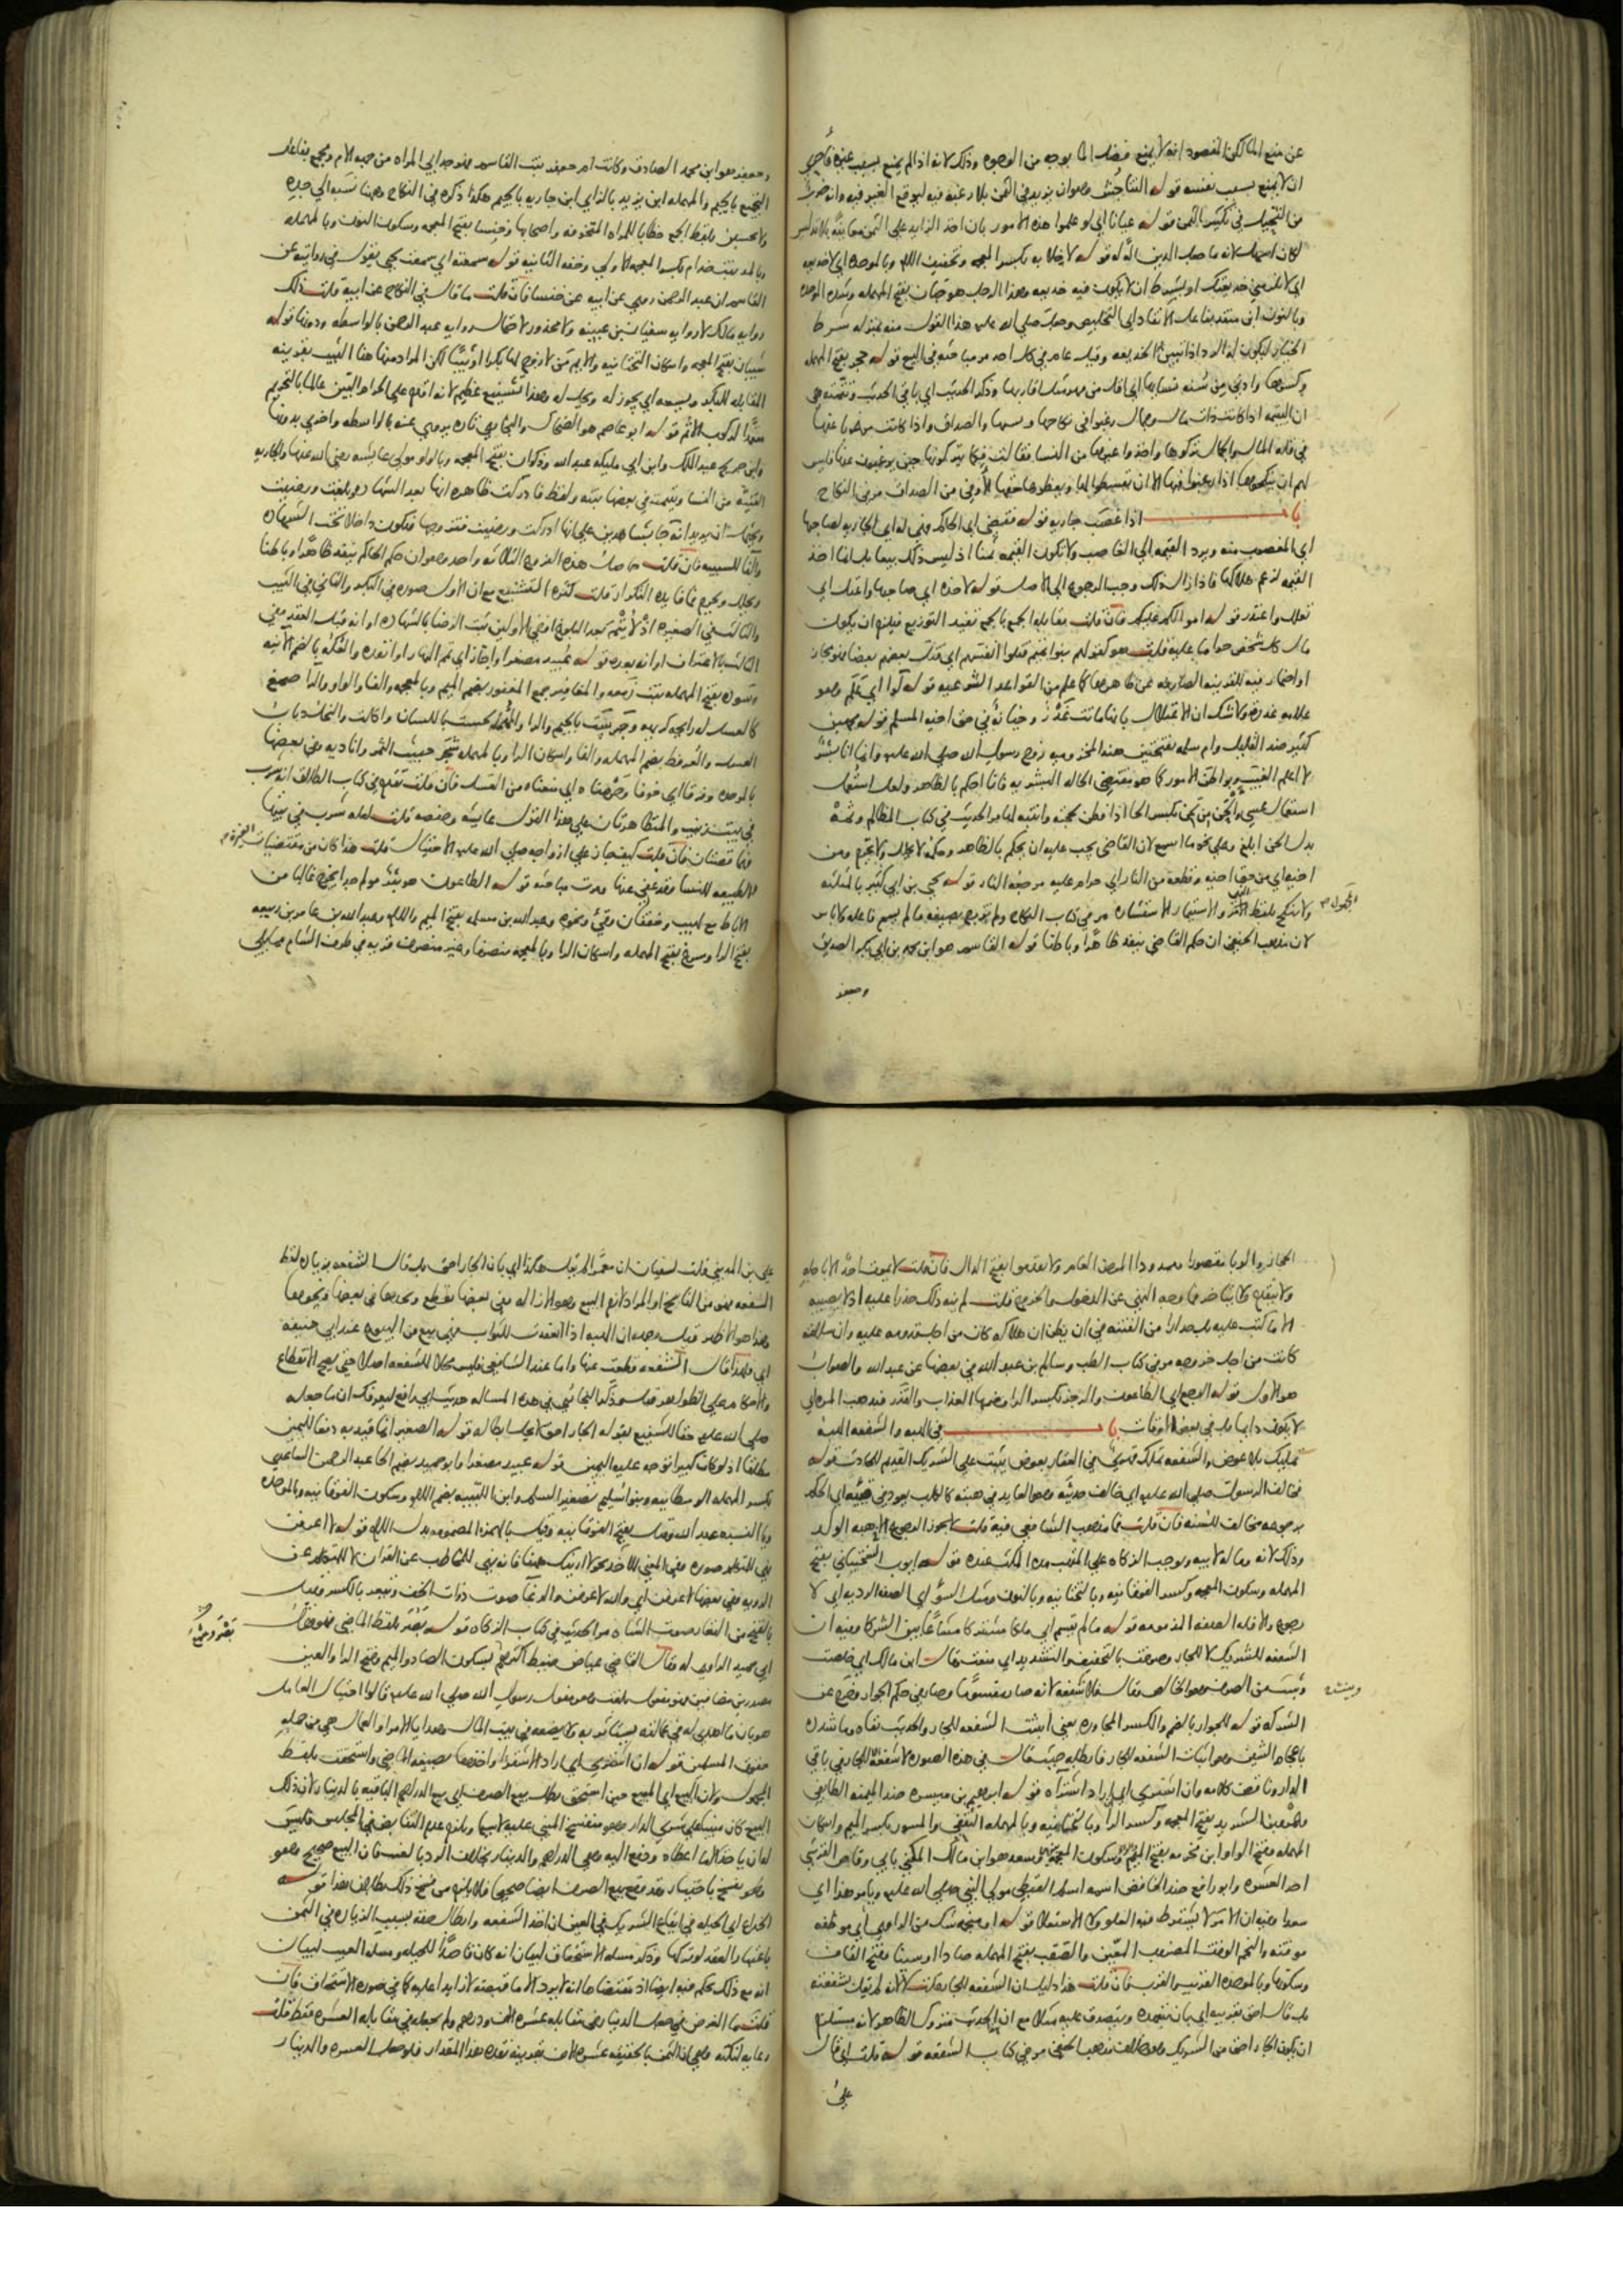 عن منع الكلأ لكن المقصود انه لا يمنع فضل الما بوجه من الوجوه وذلك لانه اذا لم يمنع بسبب غيره فاحرى
ان لا يمنع بسبب نفسه قوله التناجش وهو ان يزيد في الثمن بلا رغبة فيه ليوقع الغير فيه وانه ضرب
من التحيل في تكثير الثمن قوله عيانا اي لو علموا هذه الامور بان اخذ الزايد على الثمن معاينة بلا تدليس
لكان اسهل لانه ما جعل الدين آلة له قوله لا خلابه بكسر المعجمه وتخفيف اللام وبالموحده اي لا خديعه
اي لا تلزمني خديعتك او بشرط ان لا يكون فيه خديعه وهذا الرجل هو حبان بفتح المهمله وشدة الموحده
وبالنون ابن منقذ بفاعل الانقاذ اي التخليص وجعل صلى الله عليه هذا القول منه بمنزله شرط
الخيار ليكون له الرد اذا تبين الخديعه وقيل عام في كل احد مر مباحثه في البيع قوله حجر بفتح المهمله
وكسرها وادنى من سنة نسايها اي اقل من مهر مثل اقاربها وذكر الحديث اي باقي الحديث وتتمته هي
ان اليتيمه اذا كانت ذات مال وجمال رغبوا في نكاحها ونسبها والصداق واذا كانت مرغوبا عنها
في قله المال والجمال تركوها واخذوا غيرها من النسا فقالت فكما يتركونها حين يرغبون عنها فليس
لهم ان ينكحوها اذا رغبوا فيها الا ان يقسطوا لها ويعطوها حقها الاوفى من الصداق مر في النكاح
باب اذا غصب جاريه قوله فقضي اي الحاكم وهي له اي الجاريه لصاحبها
اي المغصوب منه ويرد القيمه الي الغاصب ولا تكون القيمه ثمنا اذ ليس ذلك بيعا بل انما اخذ
القيمه لزعم هلاكها فاذا زال ذلك وجب الرجوع الي الاصل قوله لاخذه اي صاحبها واعتل اي
تعلل واعتذر قوله اموالكم عليكم فان قلت مقابلة الجمع بالجمع تفيد التوزيع فيلزم ان يكون
مال كل شخص حراما عليه قلت هو كقولهم بنو تميم قتلوا انفسهم اي قتل بعضهم بعضا فهو مجاز
او اضمار فيه للقرينه الصارفه عن ظاهرها كما علم من القواعد الشرعيه قوله لوا اي علم وهو
علامه غدره ولا شك ان الاعتلال بانها ماتت غدر وخيانة في حق اخيه المسلم قوله محمد بن
كثير ضد القليل وام سلمه بفتحتين هند المخزوميه زوج رسول الله صلى الله عليه وانما انا بشر
لا اعلم الغيب وبواطن الامور كما هو مقتضى الحاله البشريه فانا احكم بالظاهر ولعل استعمل
استعمال عسي والحن من لحن بكسر الحا اذا فطن بحجته وانتبه لها مر الحديث في كتاب المظالم وثمة
بدل الحن ابلغ وعلي نحو ما اسمع لان القاضي يجب عليه ان يحكم بالظاهر وحكمه لا يحلل ولا يحرم ومن
اخيه اي من حق اخيه وقطعه من النار اي حرام عليه مرجعه النار قوله يحيي بن ابي كثير بالمثلثه
ولا تنكح بلفظ والاستيمار الاستشاره مر في كتاب النكاح ولم تزوج بصيغه ما لم يسم فاعله
لان مذهب الحنفي ان حكم القاضي ينفذ ظاهرا وباطنا قوله القاسم هو ابن محمد بن ابي بكر الصديق
وجعفر
وجعفر هو ابن محمد الصادق وكانت ام جعفر بنت القاسم فهو جد ابي المراه من جهه الام ومجمع بفاعل
التجميع بالجيم والمهمله ابن يزيد بالزاي ابن جاريه بالجيم هكذا ذكره في النكاح وهنا نسبه الي جده
ولا تخشين بلفظ الجمع خطابا للمراه المتخوفه واصحابها وخنسا بفتح المعجمه وسكون النون وبالمهمله
وبالمد بنت خدام بكسر المعجمه الاولي وخفه الثانيه قوله سمعته اي سمعت يحيي يقول في روايته عن
القاسم ان عبد الرحمن روي عن ابيه عن خنسا فان قلت ما قال في النكاح عن ابيه قلت ذلك
روايه مالك لا روايه سفيان بن عيينه ولا محذور لاحتمال روايه عبد الرحمن بالواسطه ودونها قوله
شيبان بفتح المعجمه واسكان التحتانيه والايم من لا زوج لها بكرا او ثيبا لكن المراد منها هنا الثيب بقرينه
المقابله للبكر ويسعه اي يجوز له ويحل له وهذا تشنيع عظيم لانه اقدم علي الحرام البين عالما بالتحريم
متعمدا لركوب الاثم قوله ابو عاصم هو الضحاك والبخاري تاره يروي عنه بالواسطه واخري بدونها
وابن جريج عبد الملك وابن ابي مليكه عبد الله وذكوان بفتح المعجمه وبالواو مولي عايشه رضي الله عنها والجاريه
الفتيه من النسا ويتيمه في بعضها ثيبه ولفظ فادركت ظاهره انها بعد الشهاده بلغت ورضيت
ويحتمل ان يريد انه جا بشاهدين علي انها ادركت ورضيت فتزوجها فتكون داخلا تحت الشهاده
والفا للسببيه فان قلت حاصل هذه الفروع الثلاثه واحد وهو ان حكم الحاكم ينفذ ظاهرا وباطنا
ويحلل ويحرم فما فايده التكرار قلت كثره التشنيع مع ان الاول صوره في البكر والثاني في الثيب
والثالث في الصغيره اذ لا يتم بعد البلوغ او في الاولين ثبت الرضا بالشهاده او انه قبل العقد وفي
الثالث بالاعتراف او انه بعده قوله عبيد مصغرا واجاز اي تم النهار او انفذه والعكه بالضم الانيه
وسوده بفتح المهمله بنت زمعه والمغافير جمع المغفور بضم الميم وبالمعجمه والفا والواو والرا صمغ
كالعسل له رايحه كريهه وجرست بالجيم والرا والمهمله لحست باللسان واكلت والنحل ذباب
العسل والعرفط بضم المهمله والفا واسكان الرا وبالمهمله شجر خبيث الثمر وانا ديه وفي بعضها
بالموحده وفرقا اي خوفا وحرمناه اي منعناه من العسل فان قلت تقدم في كتاب الطلاق انه شرب
في بيت زينب والمتظاهرتان علي هذا القول عايشه وحفصه قلت لعله شرب في بيتها
فهما قصتان فان قلت كيف جاز علي ازواجه صلي الله عليه الاحتيال قلت هذا كان من مقتضيات الغيره
الطبيعيه للنسا وقد عفي عنها ومرت مباحثه قوله الطاعون هو بثر مولم جدا يخرج غالبا من
الاباط مع لهيب وخفقان وقيء ونحوه وعبد الله بن مسلمه بفتح الميم واللام وعبد الله بن عامر بن ربيعه
بفتح الرا وسرغ بفتح المهمله واسكان الرا وبالمعجمه منصرفا وغير منصرف قريه في طرف الشام مما يلي
الحجاز والوبا مقصورا وممدودا المرض العام ولا تقدموا بفتح الدال فان قلت لا يموت احد الا باجله
ولا يتقدم ولا يتاخر فما وجه النهي عن الدخول والخروج قلت لم ينه ذلك حذرا عليه اذ لا يصيبه
الا ما كتب عليه بل حذرا من الفتنه في ان يظن ان هلاكه كان من اجل قدومه عليه وان سلامته
كانت من اجل خروجه مر في كتاب الطب وسالم بن عبد الله في بعضها عن عبد الله والصواب
هو الاول قوله الوجع اي الطاعون والرجز بكسر الرا وضمها العذاب والقذر فيذهب المره اي
لا يكون دايما بل في بعض الاوقات باب في الهبه والشفعه الهبه
تمليك بلا عوض والشفعه تملك قهري في العقار بعوض يثبت علي الشريك القديم للحادث قوله
فخالف الرسول صلي الله عليه اي خالف حديثه وهو العايد في هبته كالكلب يعود في قيئه اي الحكم
برجوعه مخالف للسنه فان قلت فما مذهب الشافعي فيه قلت لا يجوز الرجوع الا هبه الولد
وذلك لانه وماله لابيه ويوجب الزكاه علي المتهب مده المكث عنده قوله ايوب السختياني بفتح
المهمله وسكون المعجمه وكسر الفوقانيه وبالتحتانيه وبالنون ومثل السوء اي الصفه الرديه اي لا
رجوع والا فله الصفه المذمومه قوله ما لم يقسم اي ملكا مشتركا مشاعا بين الشركا وفيه ان
الشفعه للشريك لا للجار وصرفت بالتخفيف والتشديد اي منعت وقال ابن مالك اي خلصت
وبينت من الصرف وهو الخالص وقال فلا شفعه لانه صار مقسوما وصار في حكم الجوار وخرج عن
الشركه قوله للجوار بالضم والكسر المجاوره يعني اثبت الشفعه للجار والحديث نفاه وما شدده
باعجام الشين وهو اثبات الشفعه للجار فابطله حيث قال في هذه الصوره لا شفعه للجار في باقي
الدار وناقض كلامه وان اشتري اي اراد اشتراه قوله ابرهيم بن ميسره ضد الميمنه الطايفي
وعمرو بن الشريد بفتح المعجمه وكسر الرا وبالتحتانيه وبالمهمله الثقفي والمسور بكسر الميم واسكان
المهمله وفتح الواو ابن مخرمه بفتح الميم وسكون المعجمه وسعد هو ابن مالك المكني بابي وقاص القرشي
احد العشره وابو رافع ضد الخافض اسمه اسلم القبطي مولي النبي صلي الله عليه ويامر هذا اي
سعدا وفيه ان الامر لا يشترط فيه العلو ولا الاستعلا قوله او منجمه شك من الراوي اي موظفه
موقته والنجم الوقت المضروب المعين والصقب بفتح المهمله صادا او سينا وفتح القاف
وسكونها وبالموحده القريب والقرب فان قلت هذا دليل ان الشفعه للجار قلت لا لانه لم يقل بشفعته
بل قال احق بقربه اي بان يتعهده ويتصدق عليه مثلا مع ان الحديث متروك الظاهر لانه مستلزم
ان يكون الجار احق من الشريك وهو خلاف مذهب الحنفي مر في كتاب الشفعه قوله قلت اي قال
علي
علي بن المديني قلت لسفيان ان معمرا لم يقل هكذا اي بان الجار احق بل قال الشفعه بزياده لفظ
الشفعه فهو من الناسخ او المراد لازم البيع وهو الازاله وفي بعضها يقطع ونحوها في بعضها ونحوها
وهذا هو الاظهر قيل وجهه ان الهبه اذا انعقدت للثواب فهي بيع من البيوع عند ابي حنيفه
اي فلهذا قال الشفعه قطعت عنها واما عند الشافعي فليس محلا للشفعه اصلا حتي يصح الانقطاع
صلي الله عليه حقا للشفيع بقوله الجار احق لا يحل ابطاله قوله الصغير انما قيد به دفعا لليمين
مطلقا اذ لو كان كبيرا توجه عليه اليمين قوله عبيد مصغرا وابو حميد بضم الحا عبد الرحمن الساعدي
بكسر المهمله الوسطانيه وبنو سليم تصغير السلم وابن اللتبيه بضم اللام وسكون الفوقانيه وبالموحده
ويا النسبه عبد الله وقيل بفتح الفوقانيه وقيل بالهمزه المضمومه بدل اللام قوله لا اعرفن
الرويه وفي بعضها لاعرفن اي والله لاعرفن والرغا صوت ذوات الخف وتيعر بالكسر وقيل
بالفتح من اليعار صوت الشاه مر الحديث في كتاب الزكاه قوله بصر بلفظ الماضي
ابي حميد الراوي له وقال القاضي عياض ضبط اكثرهم بسكون الصاد والميم وفتح الرا والعين
مصدرين مضافين فهو مفعول بلغت وهو مقول رسول الله صلي الله عليه قالوا احتيال العامل
هو بان ما اهدي له في عمالته يستاثر به ولا يضعه في بيت المال وهدايا الامرا والعمال هي من جمله
حقوق المسلمين قوله ان اشتري اي اراد الاشترا واحتف بصيغه الماضي واستحقت بلفظ
المجهول ولان البيع اي المبيع حين استحق بطل بيع الصرف اي بيع الدراهم الباقيه بالدينار لان ذلك
البيع كان مبنيا علي شري الدار وهو منفسخ
له ان ياخذ الا ما اعطاه ودفع اليه وهي الدراهم والدينار بخلاف الرد بالعيب فان البيع صحيح وهو
الخداع اي الحيله في ايقاع الشريك في الغبن ان اخذ الشفعه وابطال حقه بسبب الزياده في الثمن
باعتبار العقد لو تركها وذكر مسله الاستحقاق لبيان انه كان قاصدا للحيله ومسله العيب لبيان
انه مع ذلك يحكم فيه ايضا اذ مقتضاها انه لا يرد الا ما قبضه لا زايدا عليه كما في صوره الاستحقاق فان
قلت ما الغرض في جعل الدينار في مقابله عشره الاف ودرهم ولم يجعله في مقابله العشره فقط قلت
رعايه لنكته وهي ان الثمن بالحقيقه عشره الاف بقرينه نقده هذا المقدار فلو جعل العشره والدينار